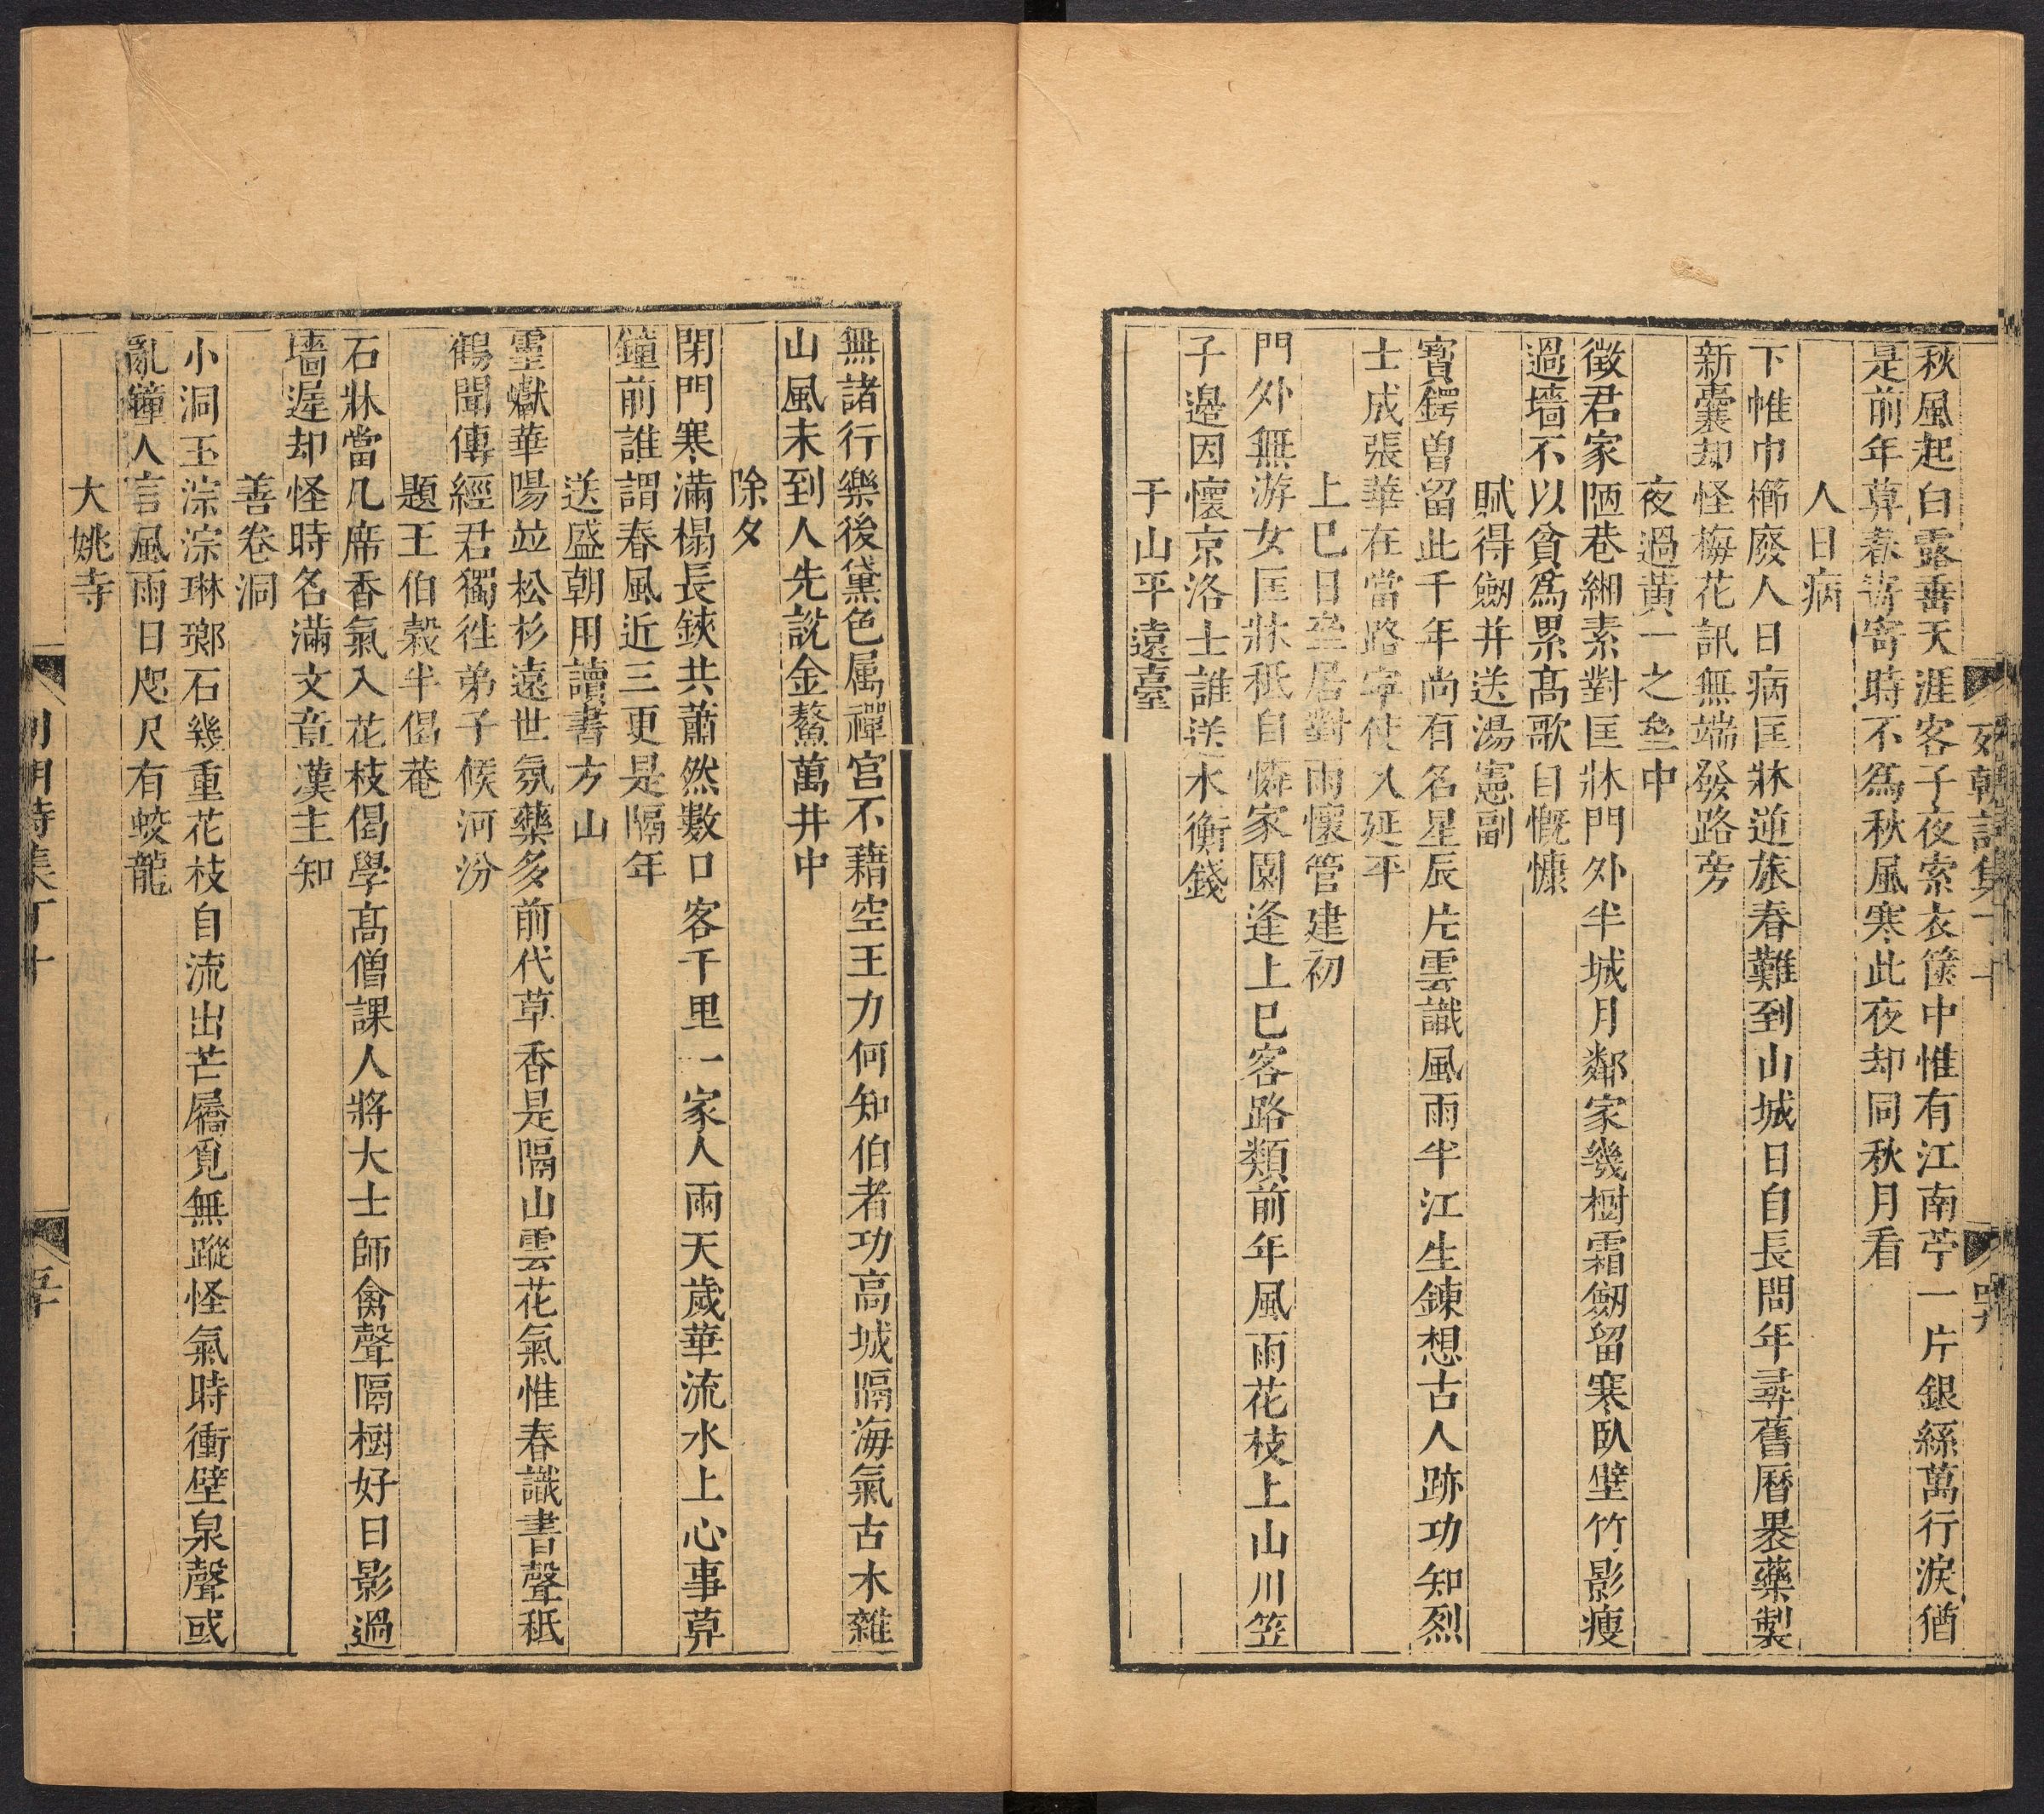 秋風起白露垂天涯客子夜索衣篋中惟有江南苧一片銀絲萬行淚猶
是前年莫春寄寄時不為秋風寒此夜却同秋月看
人日病
下帷巾櫛廢人日病匡牀逆旅春難到山城日自長問年尋舊曆褁藥製
新囊却怪梅花訊無端發路旁
夜過黃一之壘中
徵君家陋巷緗素對匡牀門外半城月鄰家幾樹霜劒留寒臥壁竹影瘦
過墻不以貧為累髙歌自慨慷
賦得劒并送湯憲副
寶鍔曽留此千年尚有名星辰片雲識風雨半江生鍊想古人跡功知烈
士成張華在當路寧使入延平
上巳日壘居對雨懷管建初
門外無游女匡牀秪自憐家園逢上巳客路類前年風雨花枝上山川笠
子邉因懷京洛士誰送水衡錢
于山平遠臺
無諸行樂後黛色属禪宫不藉空王力何知伯者功高城隔海氣古木雜
山風未到人先說金鰲萬井中
除夕
閉門寒滿榻長鋏共蕭然數口客千里一家人兩天歲華流水上心事莫
鐘前誰謂春風近三更是隔年
送盛朝用讀書方山
靈巘華陽竝松杉遠世氛藥多前代草香是隔山雲花氣惟春識書聲秪
鶴聞傳經君獨徃弟子候河汾
題王伯榖半偈菴
石牀當几席香氣入花枝偈學髙僧課人將大士師禽聲隔樹好日影過
墻遲却怪時名滿文章漢主知
善卷洞
小洞玉淙淙琳瑯石幾重花枝自流出芒屩覓無蹤怪氣時衝壁泉聲或
亂鐘人言風雨日咫尺有蛟龍
大姚寺
列朝詩集丁十
五十